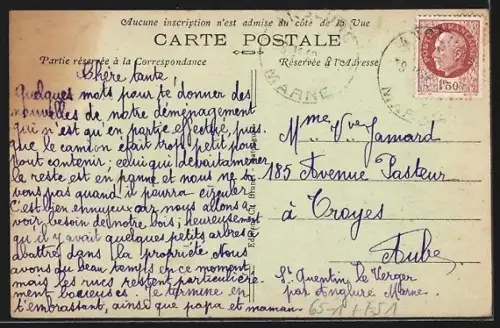 Aucune inscription n'est admise au côté de la Vue
CARTE POSTALE
Partie réservée à la Correspondance
Réservée à l'Adresse
Chère tante
Quelques mots pour te donner des
nouvelles de notre déménagement
qui n'est qu'en partie effectué, puis
que le camion était trop petit pour
tout contenir; celui qui devait amener
le reste est en panne et nous ne sa
vons pas quand il pourra circuler
C'est bien ennuyeux car nous allons a
voir besoin de notre bois; heureusement
qu'il y avait quelques petits arbres à
abattre dans la propriété. Nous
avons du beau temps en ce moment
mais les rues restent particulière
ment boueuses. Je termine en
t'embrassant, ainsi que papa et maman.
MARNE
1F50
Mme Vve Jamard
185 Avenue Pasteur
à Troyes
Aube
St Quentin le Verger
par Anglure Marne